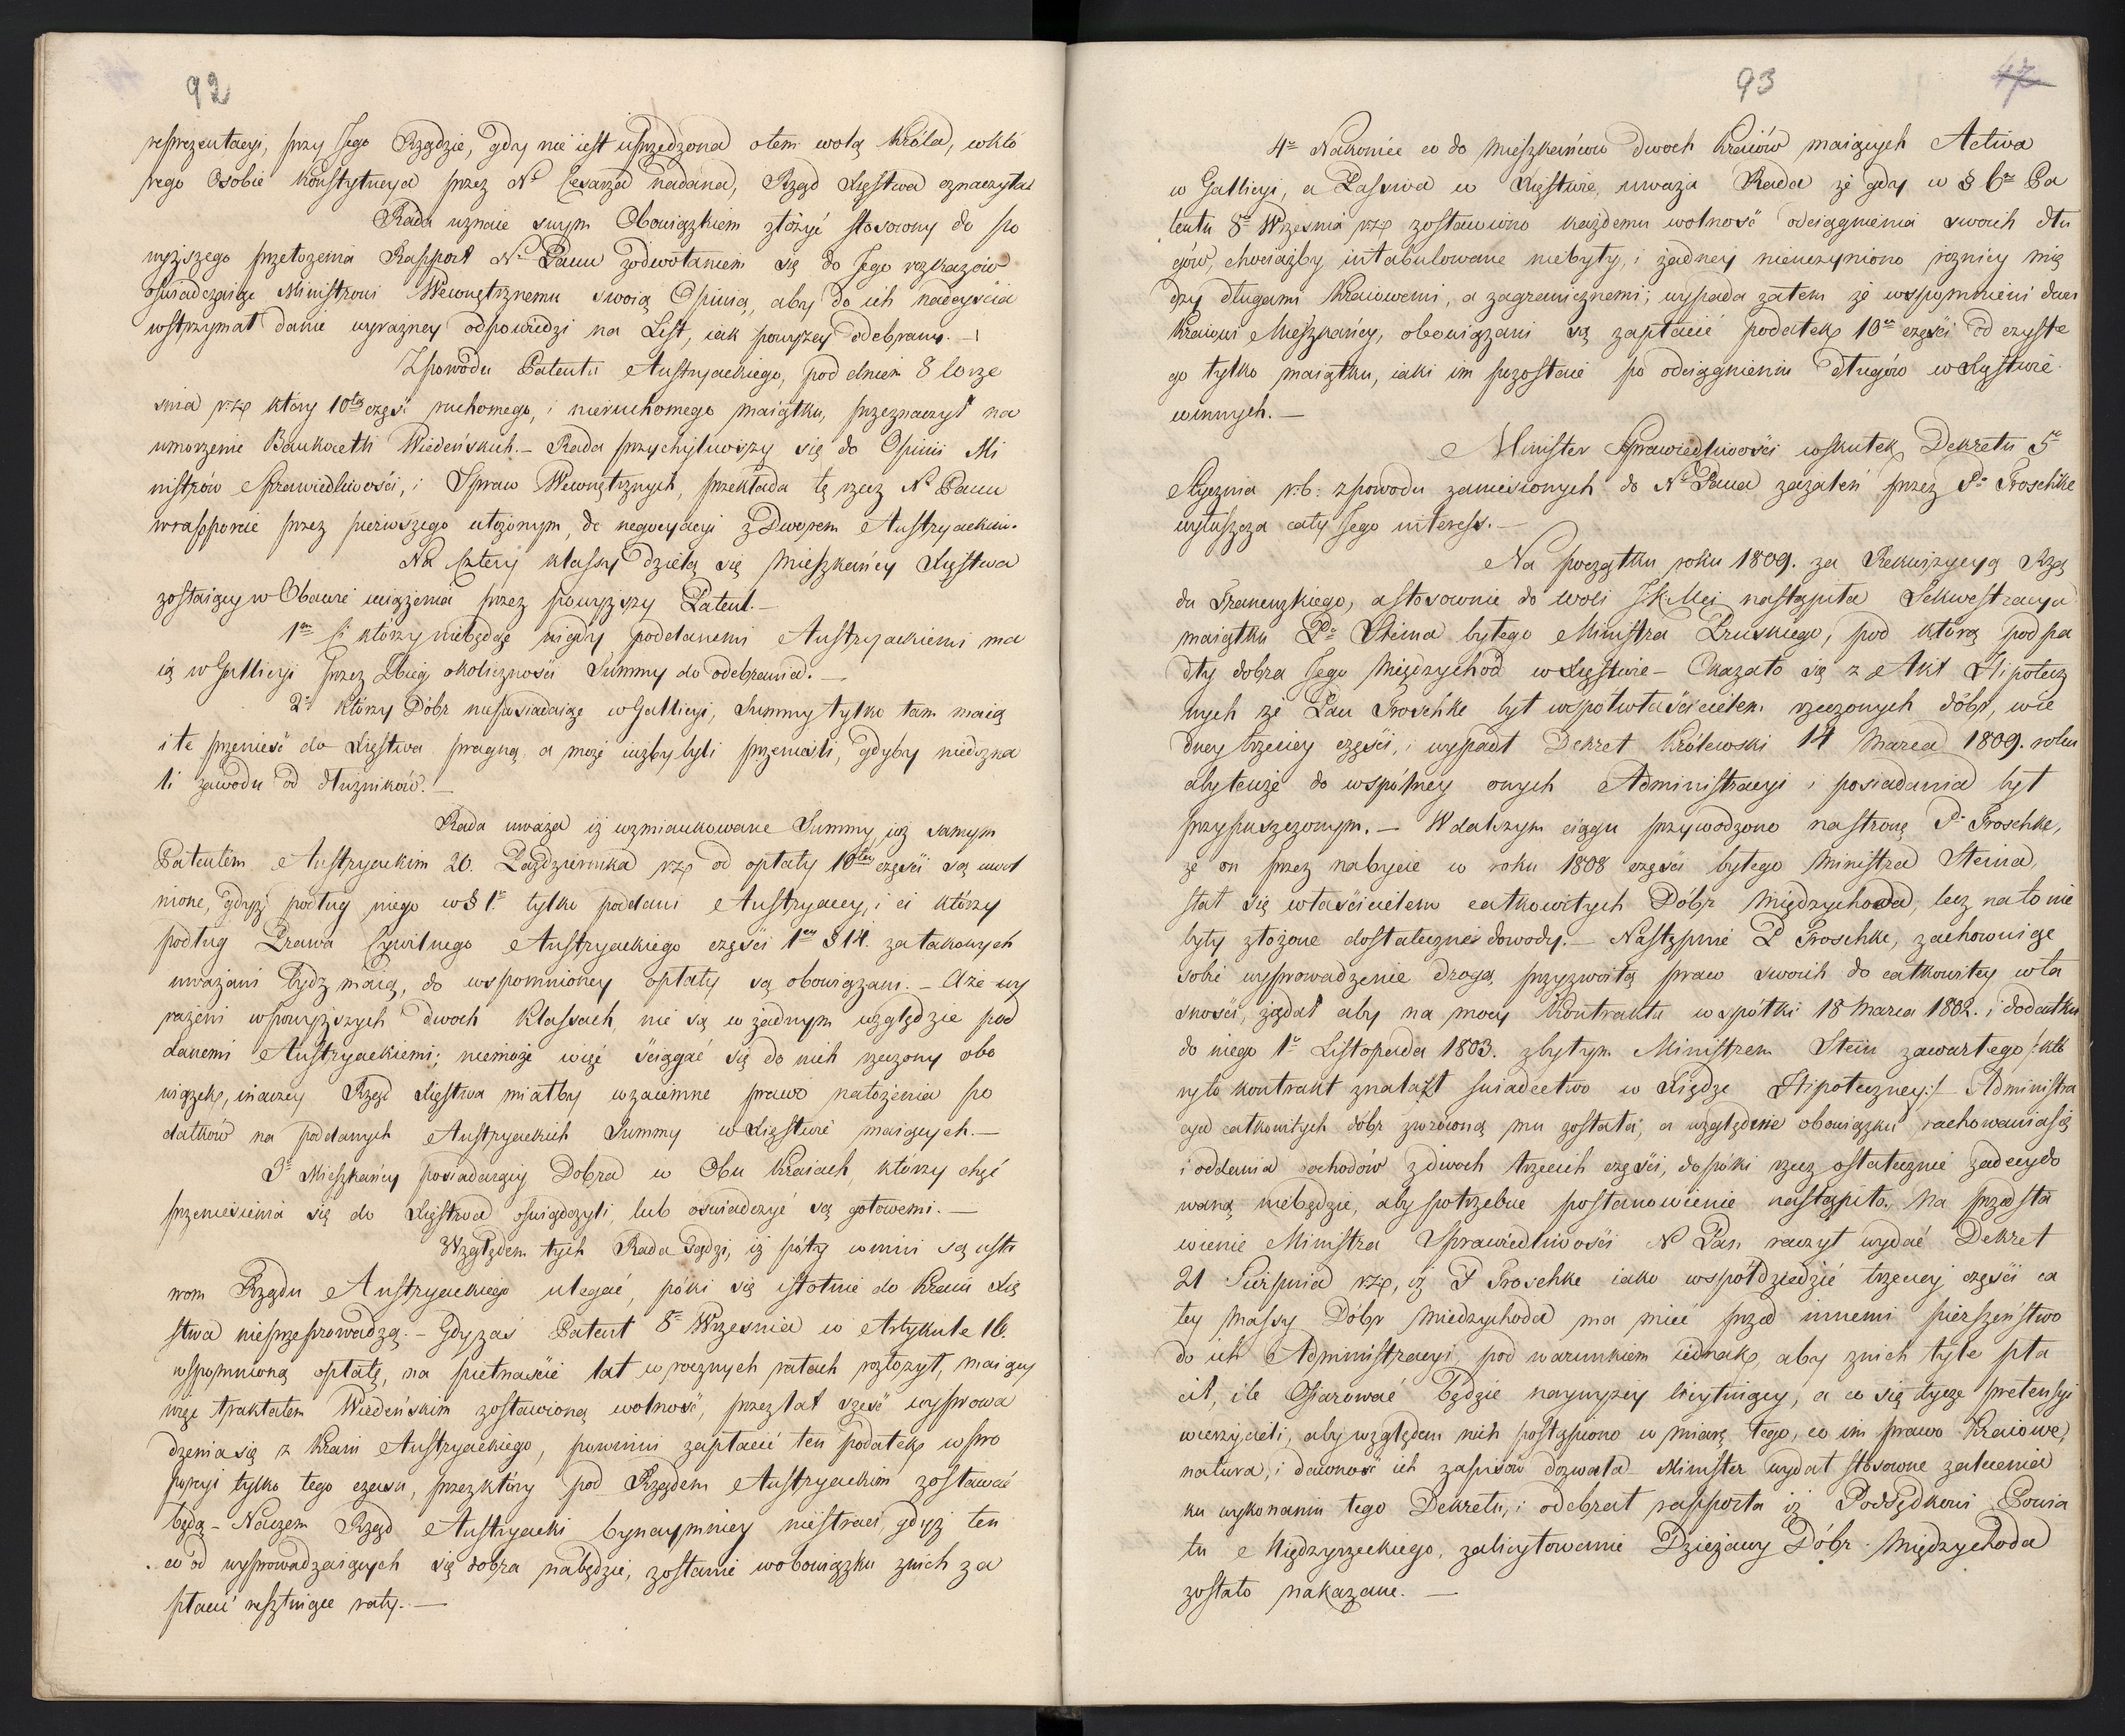 92
reprezentacyi, przy Jego Rządzie, gdy nie iest uprzedzona otem wolą Króla, wktó
rego Osobie konstytucya przez N° Cesarza nadana, Rząd Xięstwa oznaczyła
Rada uznaie swym Obowiązkiem złożyć stosowny do po
wyższego przełożenia Rapport N. Panu zodwołaniem się do Jego rozkazów
oświadczaiąc Ministrowi Wewnętrznemu swoią Opinią, aby do ich nadeyścia
wstrzymał danie wyraźney odpowiedzi na List, iak powyżey odebrany. —
Zpowodu Patentu Austryackiego, pod dniem 8 Wrze
śnia r.z. który 10tą część ruchomego, i nieruchomego maiątku, przeznaczył na
umorzenie Bankocetli Wiedeńskich. — Rada przychyliwszy się do Opinii Mi
nistrów Sprawiedliwości, i Spraw Wewnętrznych, przekłada tę rzecz N. Panu
wrapporcie przez pierwszego ułożonym, do negocyacyi z Dworem Austryackim.
Na Cztery klassy dzielą się Mieszkańcy Xięstwa
zostaiący w Obawie uciążenia przez powyższy Patent. —
1mo Ci którzy niebędąc nigdy poddanemi Austryackiemi ma
ią w Gallicyi przez Zbieg okoliczności Summy do odebrania. —
2° Którzy Dóbr nieposiadaiąc w Gallicyi, Summy tylko tam maią
i te przenieść do Xięstwa pragną, a może iużby byli przenieśli, gdyby niedozna
li zawodu od dłużników. —
Rada uważa iż wzmiankowane Summy, iuż samym
Patentem Austryackim 20. Października r.z. od opłaty 10tey części są uwol
nione, gdyż podług niego w § 1° tylko poddani Austryaccy, i ci którzy
podług Prawa Cywilnego Austryackiego części 1ey § 14. zatakowych
uważani bydź maią, do wspomnioney opłaty są obowiązani. — Aże wy
rażeni wpowyższych dwoch klassach, nie są w żadnym względzie pod
danemi Austryackiemi; niemoże więc ściągać się do nich rzeczony obo
wiązek, inaczey Rząd Xięstwa miałby wzaiemne prawo nałożenia po
datków na poddanych Austryackich Summy w Xięstwie maiących. —
3° Mieszkańcy posiadaiący Dobra w Obu Kraiach, którzy chęć
przeniesienia się do Xięstwa oświadczyli, lub oświadczyć są gotowemi. —
Względem tych Rada Sądzi, iż póty winni są usta
wom Rządu Austryackiego ulegać, póki się istotnie do Kraiu Xię
stwa nieprzeprowadzą. — Gdy zaś Patent 8° Września w Artykule 16.
wspomnioną opłatę, na pietnaście lat w rocznych ratach rozłożył, maiący
więc traktatem Wiedeńskim zostawioną wolność, przez lat sześć wyprowa
dzenia się z Kraiu Austryackiego, powinni zapłacić ten podatek w pro
porcyi tylko tego czasu, przez który pod Rządem Austryackim zostawać
będą — Naczem Rząd Austryacki bynaymniey niestraci, gdyż ten
co od wyprowadzaiących się dobra nabędzie, zostanie wobowiązku znich za
płacić resztuiące raty. —
93
47
4° Nakoniec co do Mieszkańców dwoch Kraiów maiących Activa
w Gallicyi, a Passiva w Xięstwie, uważa Rada że gdy w § 6° Pa
tentu 8° Września r.z. zostawiono każdemu wolność odciągnienia swoich dłu
gów, chociażby intabulowane niebyły, i żadney nieuczyniono rożnicy mię
dzy długami Kraiowemi, a zagranicznemi; wypada zatem że wspomnieni dwu
Kraiowi Mieszkańcy, obowiązani są zapłacić podatek 10ey części od czyste
go tylko maiątku, iaki im pozostaie po odciągnieniu długów w Xięstwie
winnych. —
Minister Sprawiedliwości wskutek Dekretu 5°
Stycznia r.b. zpowodu zaniesionych do N. Pana zażaleń przez P. Troschke
wyłuszcza cały Jego interess. —
Na początku roku 1809. za Rekwizycyą Rzą
du Francuzkiego, a stosownie do woli J.K.Mci nastąpiła Sekwestracya
maiątku P. Steina byłego Ministra Pruskiego, pod którą podpa
dły dobra Jego Międzychod w Xięstwie — Okazało się z Akt Hipotecz
nych że Pan Troschke był wspołwłaścicielem rzeczonych dóbr, wie
dney trzeciey części, i wypadł Dekret Królewski 14 Marca 1809. roku
aby tenże do wspólney onych Administracyi i posiadania był
przypuszczonym. — W dalszym ciągu przywodzono na stronę P. Troschke,
że on przez nabycie w roku 1808 części byłego Ministra Steina,
stał się właścicielem całkowitych Dóbr Międzychoda, lecz na to nie
były złożone dostateczne dowody. — Następnie P Troschke, zachowuiąc
sobie wyprowadzenie drogą przyzwoitą praw swoich do całkowitey wła
sności, żądał aby na mocy Kontraktu wspólki 18 Marca 1802. i dodatku
do niego 1° Listopada 1803. zbyłym Ministrem Stein zawartego /:któ
ryto kontrakt znalazł świadectwo w Xiędze Hipoteczney:/ — Administra
cya całkowitych dóbr zwróconą mu została; a względnie obowiązku rachowania się
i oddania dochodów zdwoch trzecich części, dopóki rzecz ostatecznie zadecydo
waną niebędzie, aby potrzebne postanowienie nastąpiło. Na przedsta
wienie Ministra Sprawiedliwości N Pan raczył wydać Dekret
21 Sierpnia r.z., iż P Troschke iako współdziedzic trzeciey części ca
łey Massy Dóbr Miedzychoda ma mieć przed innemi pierszeństwo
do ich Administracyi pod warunkiem iednak, aby znich tyle pła
cił, ile Ofiarować będzie naywyżey licytuiący, a co się tycze pretensyi
wierzycieli, aby względem nich postąpiono w miarę tego, co im prawo Kraiowe,
natura, i dawność ich zapisów dozwala — Minister wydał stosowne zalecenia
ku wykonaniu tego Dekretu, i odebrał rapporta iż Podsędkowi Powia
tu Międzyrzeckiego, zalicytowanie Dzierżawy Dóbr Międzychoda
zostało nakazane. —